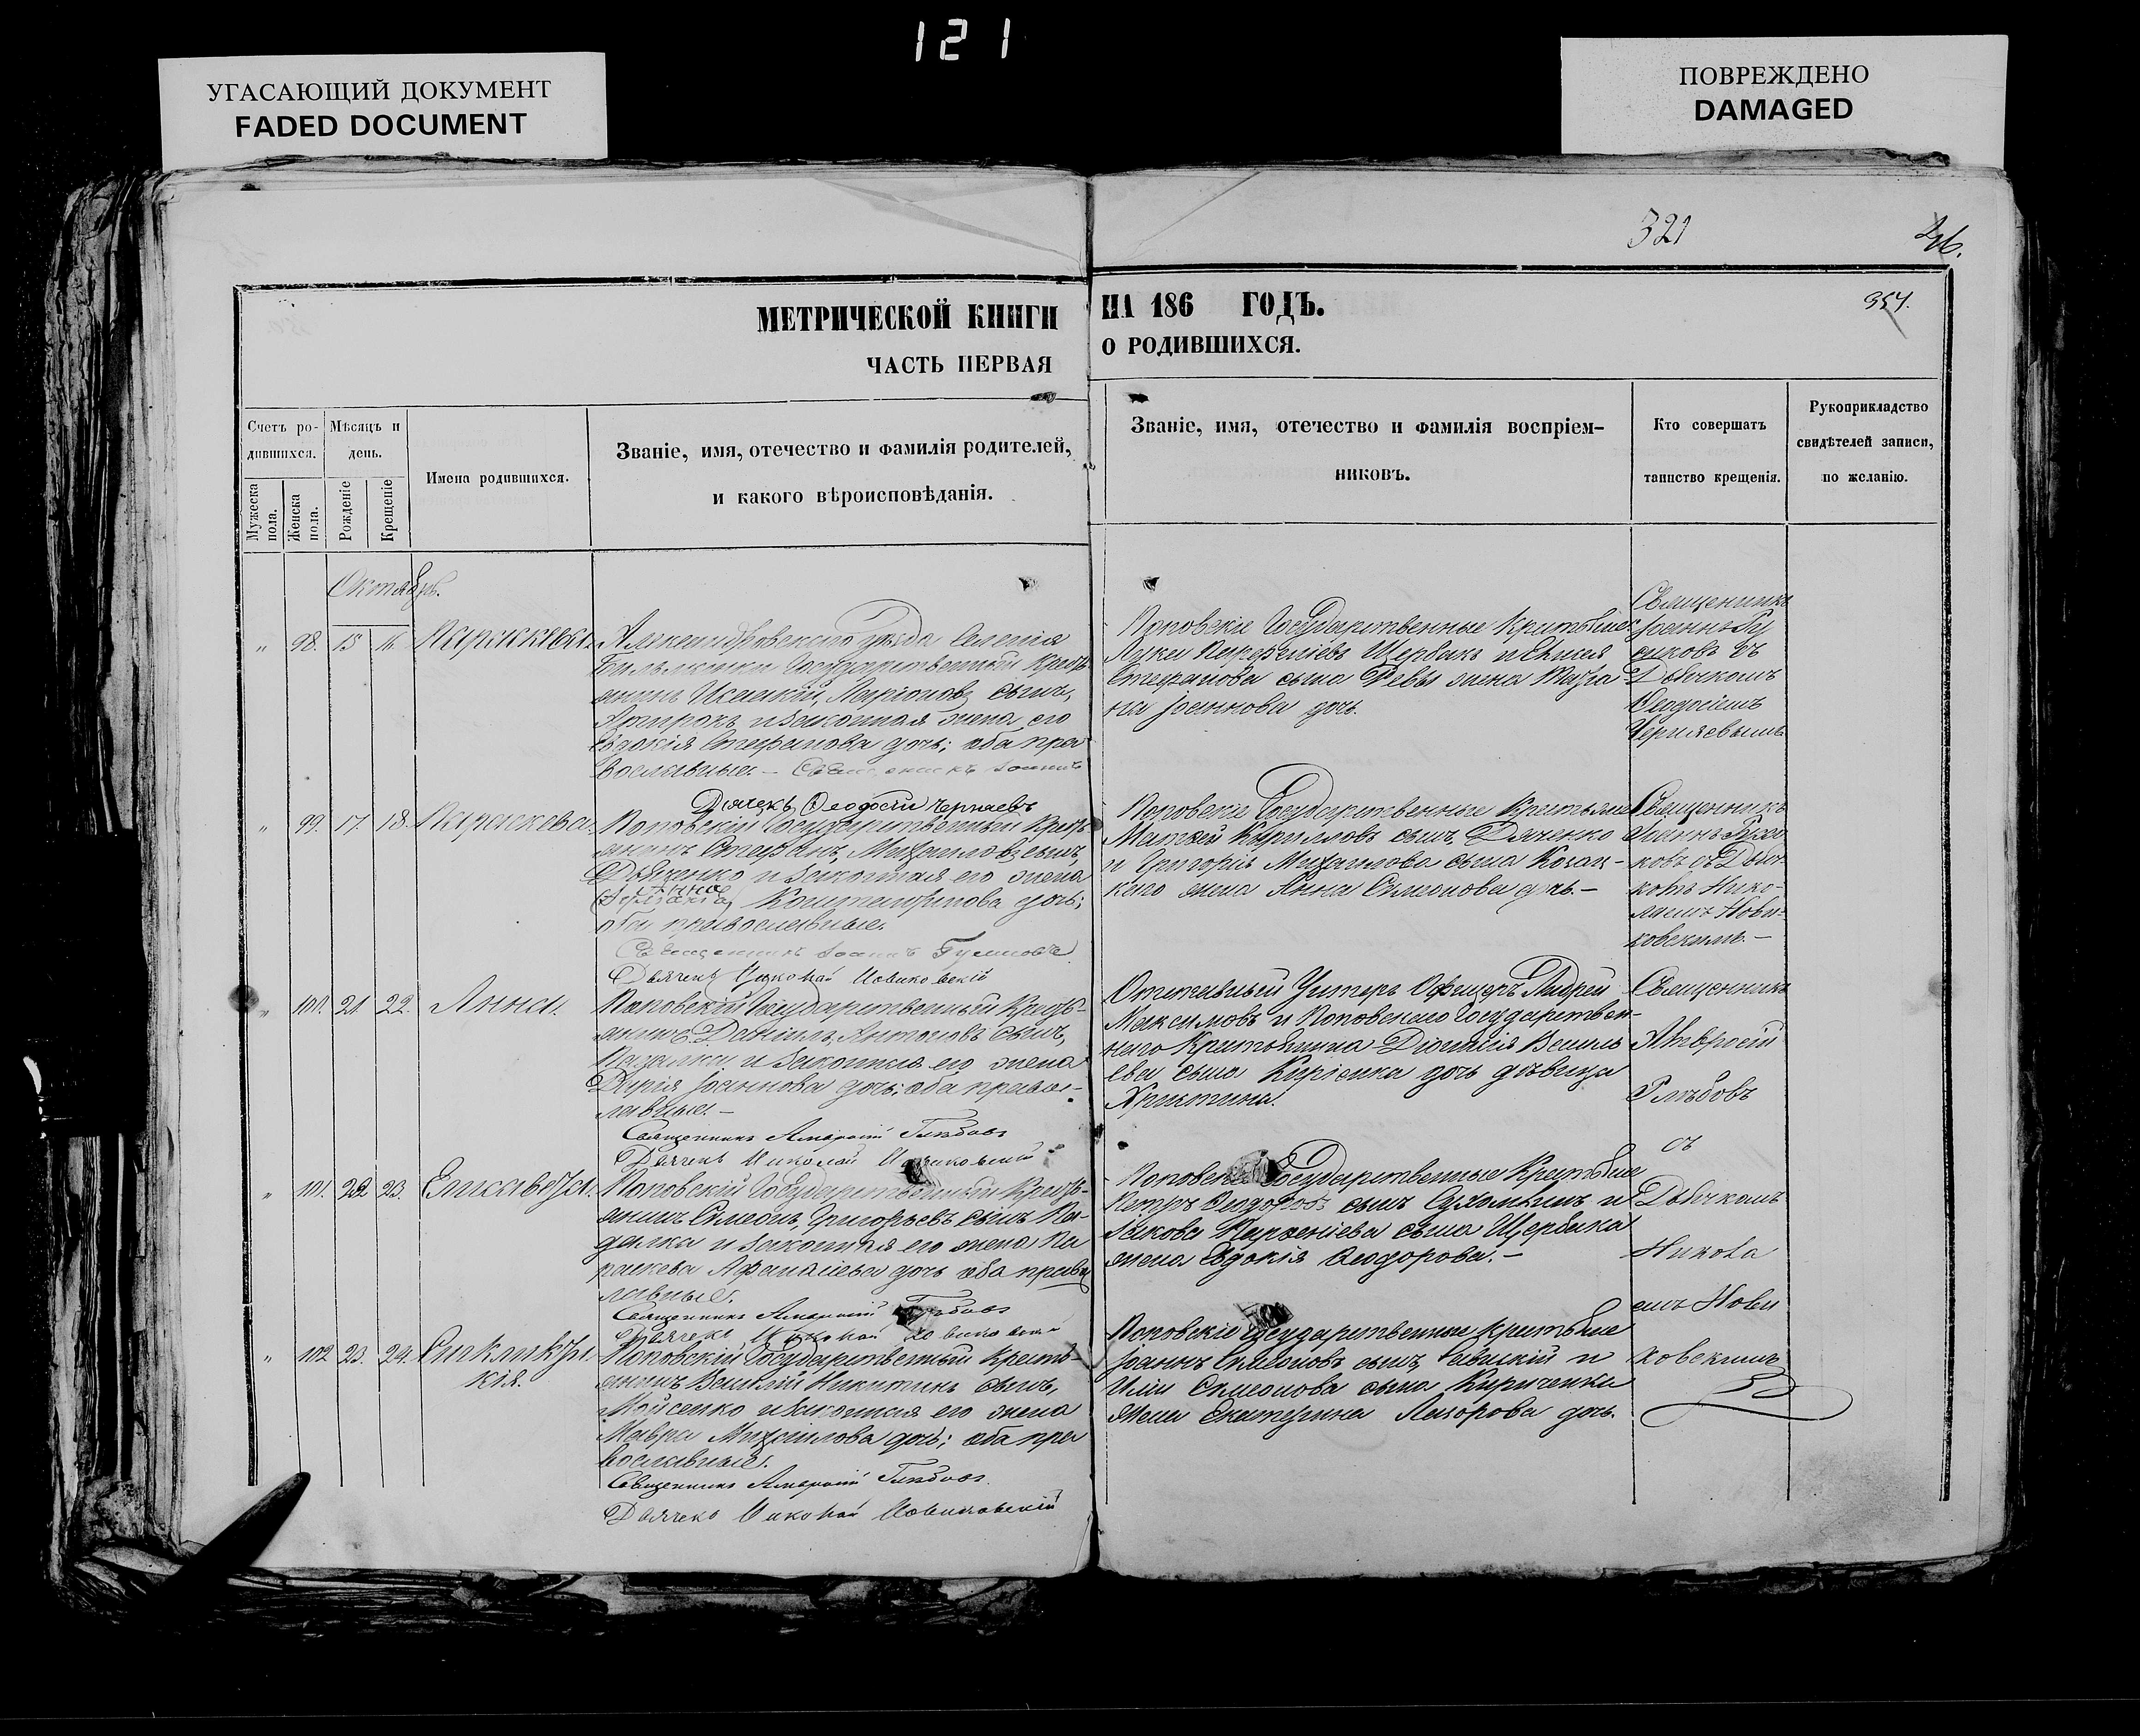 121
УГАСАЮЩИЙ ДОКУМЕНТ
FADED DOCUMENT
ПОВРЕЖДЕНО
DAMAGED
321
354.
МЕТРИЧЕСКОЙ КНИГИ НА 186 ГОДЪ.
ЧАСТЬ ПЕРВАЯ О РОДИВШИХСЯ.
Счетъ ро-
дившихся.
Мужеска пола.
Женска пола.
Мѣсяцъ и
день.
Рожденіе
Крещеніе
Имена родившихся.
Званіе, имя, отечество и фамилія родителей,
и какого вѣроисповѣданія.
Званіе, имя, отечество и фамилія воспріем-
никовъ.
Кто совершатъ
таинство крещенія.
Рукоприкладство
свидѣтелей записи,
по желанію.
Октябрь.
„ 98. 15 16. Параскева.
Александровскаго уѣзда Селенія
Государственный Крест
янинъ Ларіоновъ сынъ,
и законная жена его
Евдокія Стефанова дочь; оба пра
вославные. – Священникъ Іоаннъ
Дьячекъ Ѳеодосій Черняевъ
Поповскіе Государственные Крестьяне
Лука Парфеніевъ Щербакъ и
Стефанова сына Ревы жена Татіа-
на Іоаннова дочь.
Священникъ
Іоаннъ
съ
Дьячкомъ
Ѳеодосіемъ
Черняевымъ
„ 99. 17. 18. Параскева.
Поповскій Государственный Крест
янинъ Стефанъ Михаиловъ сынъ,
Дьяченко и законная его жена
Анна Константинова дочь;
оба православные.
Священникъ Іоаннъ
Дьячекъ Николай Новиковскій
Поповскіе Государственные Крестьяне
Матѳей Кирилловъ сынъ Дяченко
и Григорія Михаилова сына Козац-
каго жена Анна Симеонова дочь. –
Священникъ
Іоаннъ
ковъ съ Дьяч-
комъ Нико-
лаемъ Нови-
ковскимъ. –
„ 100. 21 22. Анна.
Поповскій Государственный Кресть-
янинъ Даніилъ Антоновъ сынъ,
и законная его жена
Дарія Іоаннова дочь; оба правос-
лавные. –
Священникъ Амвросій Глѣбовъ
Дьячекъ Николай Новиковскій
Отставный Унтеръ Офицеръ Андрей
Максимовъ и Поповскаго Государствен-
наго Крестьянина Діонисія Василь
ева сына Киріенка дочь дѣвица
Христина.
Священникъ
Амвросій
Глѣбовъ
съ
„ 101. 22 23. Елисавета.
Поповскій Государственный Кресть-
янинъ Симеонъ Григорьевъ сынъ
и законная его жена Па
раскева Афанасіева дочь оба правос
лавные.
Священникъ Амвросій Глѣбовъ
Дьячекъ Николай Новиковскій
Поповскіе Государственные Крестьяне
Петръ Ѳеодоровъ сынъ и
Іакова Парфеніева сына Щербака
жена Евдокія Ѳеодорова. –
Дьячкомъ
Никола
емъ Нови
„ 102 23. 24. Синклити-
кія.
Поповскій Государственный Кресть-
янинъ Василій Никитинъ сынъ,
Мойсенко и законная его жена
Мавра Михаилова дочь; оба пра
вославные.
Священникъ Амвросій Глѣбовъ.
Дьячекъ Николай Новиковскій
Поповскіе Государственные Крестьяне
Іоаннъ Симеоновъ сынъ и
Иліи Симеонова сына Кириченка
жена Екатерина дочь.
ковскимъ